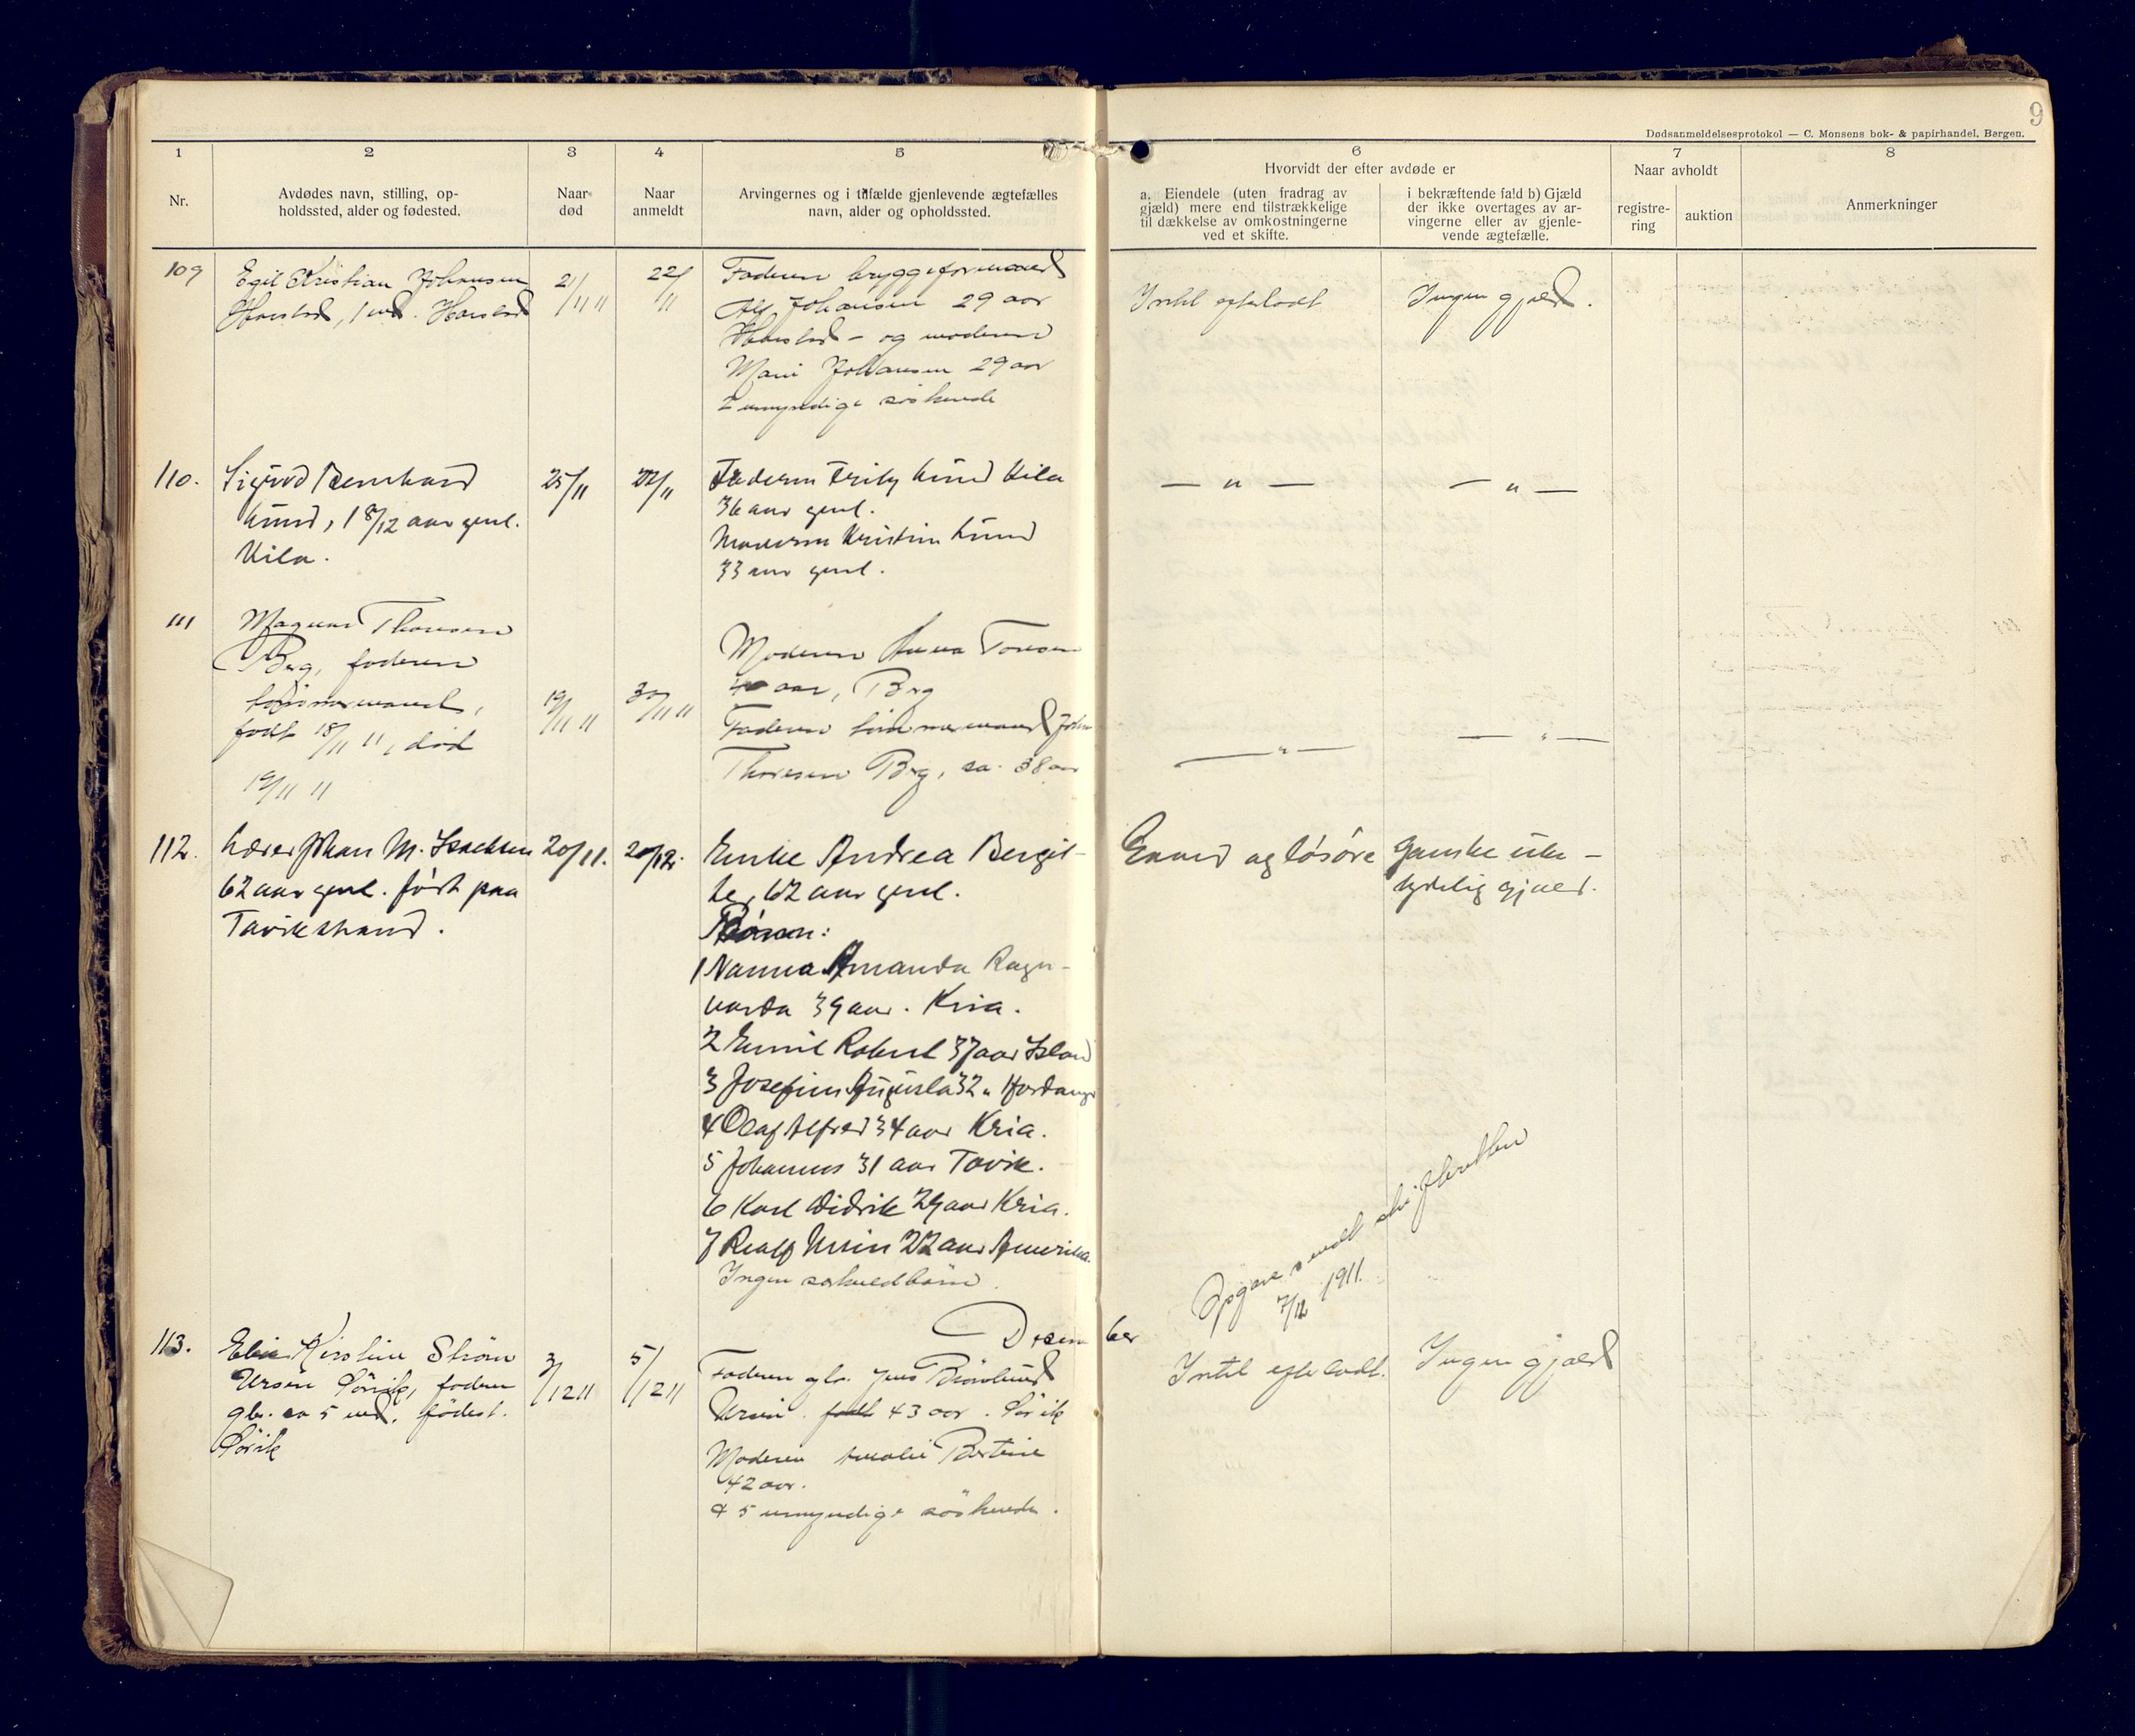 9
Dødsanmeldelsesprotokol — C. Monsens bok- & papirhandel, Bergen.
1 2 3 4 5 6 7 8
Nr.
Avdødes navn, stilling, op-
holdssted, alder og fødested.
Naar
død
Naar
anmeldt
Arvingernes og i tilfælde gjenlevende ægtefælles
navn, alder og opholdssted.
Hvorvidt der efter avdøde er
a. Eiendele (uten fradrag av
gjæld) mere end tilstrækkelige
til dækkelse av omkostningerne
ved et skifte.
i bekræftende fald b) Gjæld
der ikke overtages av ar-
vingerne eller av gjenle-
vende ægtefælle.
Naar avholdt
registre-
ring
auktion
Anmerkninger
109
Egil Kristian Johansen
Harstad, 1 md. Harstad
21/11 11
22/11
Faderen bryggeformand
Alf Johansen 29 aar
Harstad - og moderen
Marie Johansen 29 aar
2 umyndige søskende
Intet efterladt
Ingen gjæld.
110.
Sigurd Bernhard
Lund, 1 8/12 aar gml.
Kila.
25/11
Faderen Fritz Lund Kila
36 aar gml.
Moderen Kristine Lund
33 aar gml.
— " —
— " —
111
Magnus Thoresen
Berg, faderen
tømmermand,
født 18/11 11, død
19/11 11
19/11 11
30/11 11
Moderen Anna Toresen
40 aar, Berg
Faderen tømmermand John
Thoresen Berg, ca. 38 aar
— " —
— " —
112.
Lærer Johan M. Isachsen
62 aar gml. født paa
Tovikstrand.
20/11.
Enke Andrea Bergit-
te, 62 aar gml.
Børn:
1 Nanna Amanda Ragn-
varda 39 aar. Kria.
2 Emil Robert 37 aar Island
3 Josefine Augusta 32 " Hardanger
4 Olaf Alfred 34 aar Kria.
5 Johannes 31 aar Tovik.
6 Karl Didrik 29 aar Kria.
7 Rolf Ursin 22 aar Amerika.
Ingen særkuldbørn.
Eiend og løsøre
Ganske ube-
tydelig gjæld.
Opgave sendt skifteretten
7/12 1911.
Desember
113.
Kirstine Strøm
Ursin Sørvik, faderen
gbr. ca 5 md. fødest.
Sørvik
3/12 11
5/12 11
Faderen gbr. Jens Brønlund
Ursin. født 43 aar. Sørvik
Moderen Amalie Bertine
42 aar.
& 5 umyndige søskende.
Intet efterladt.
Ingen gjæld